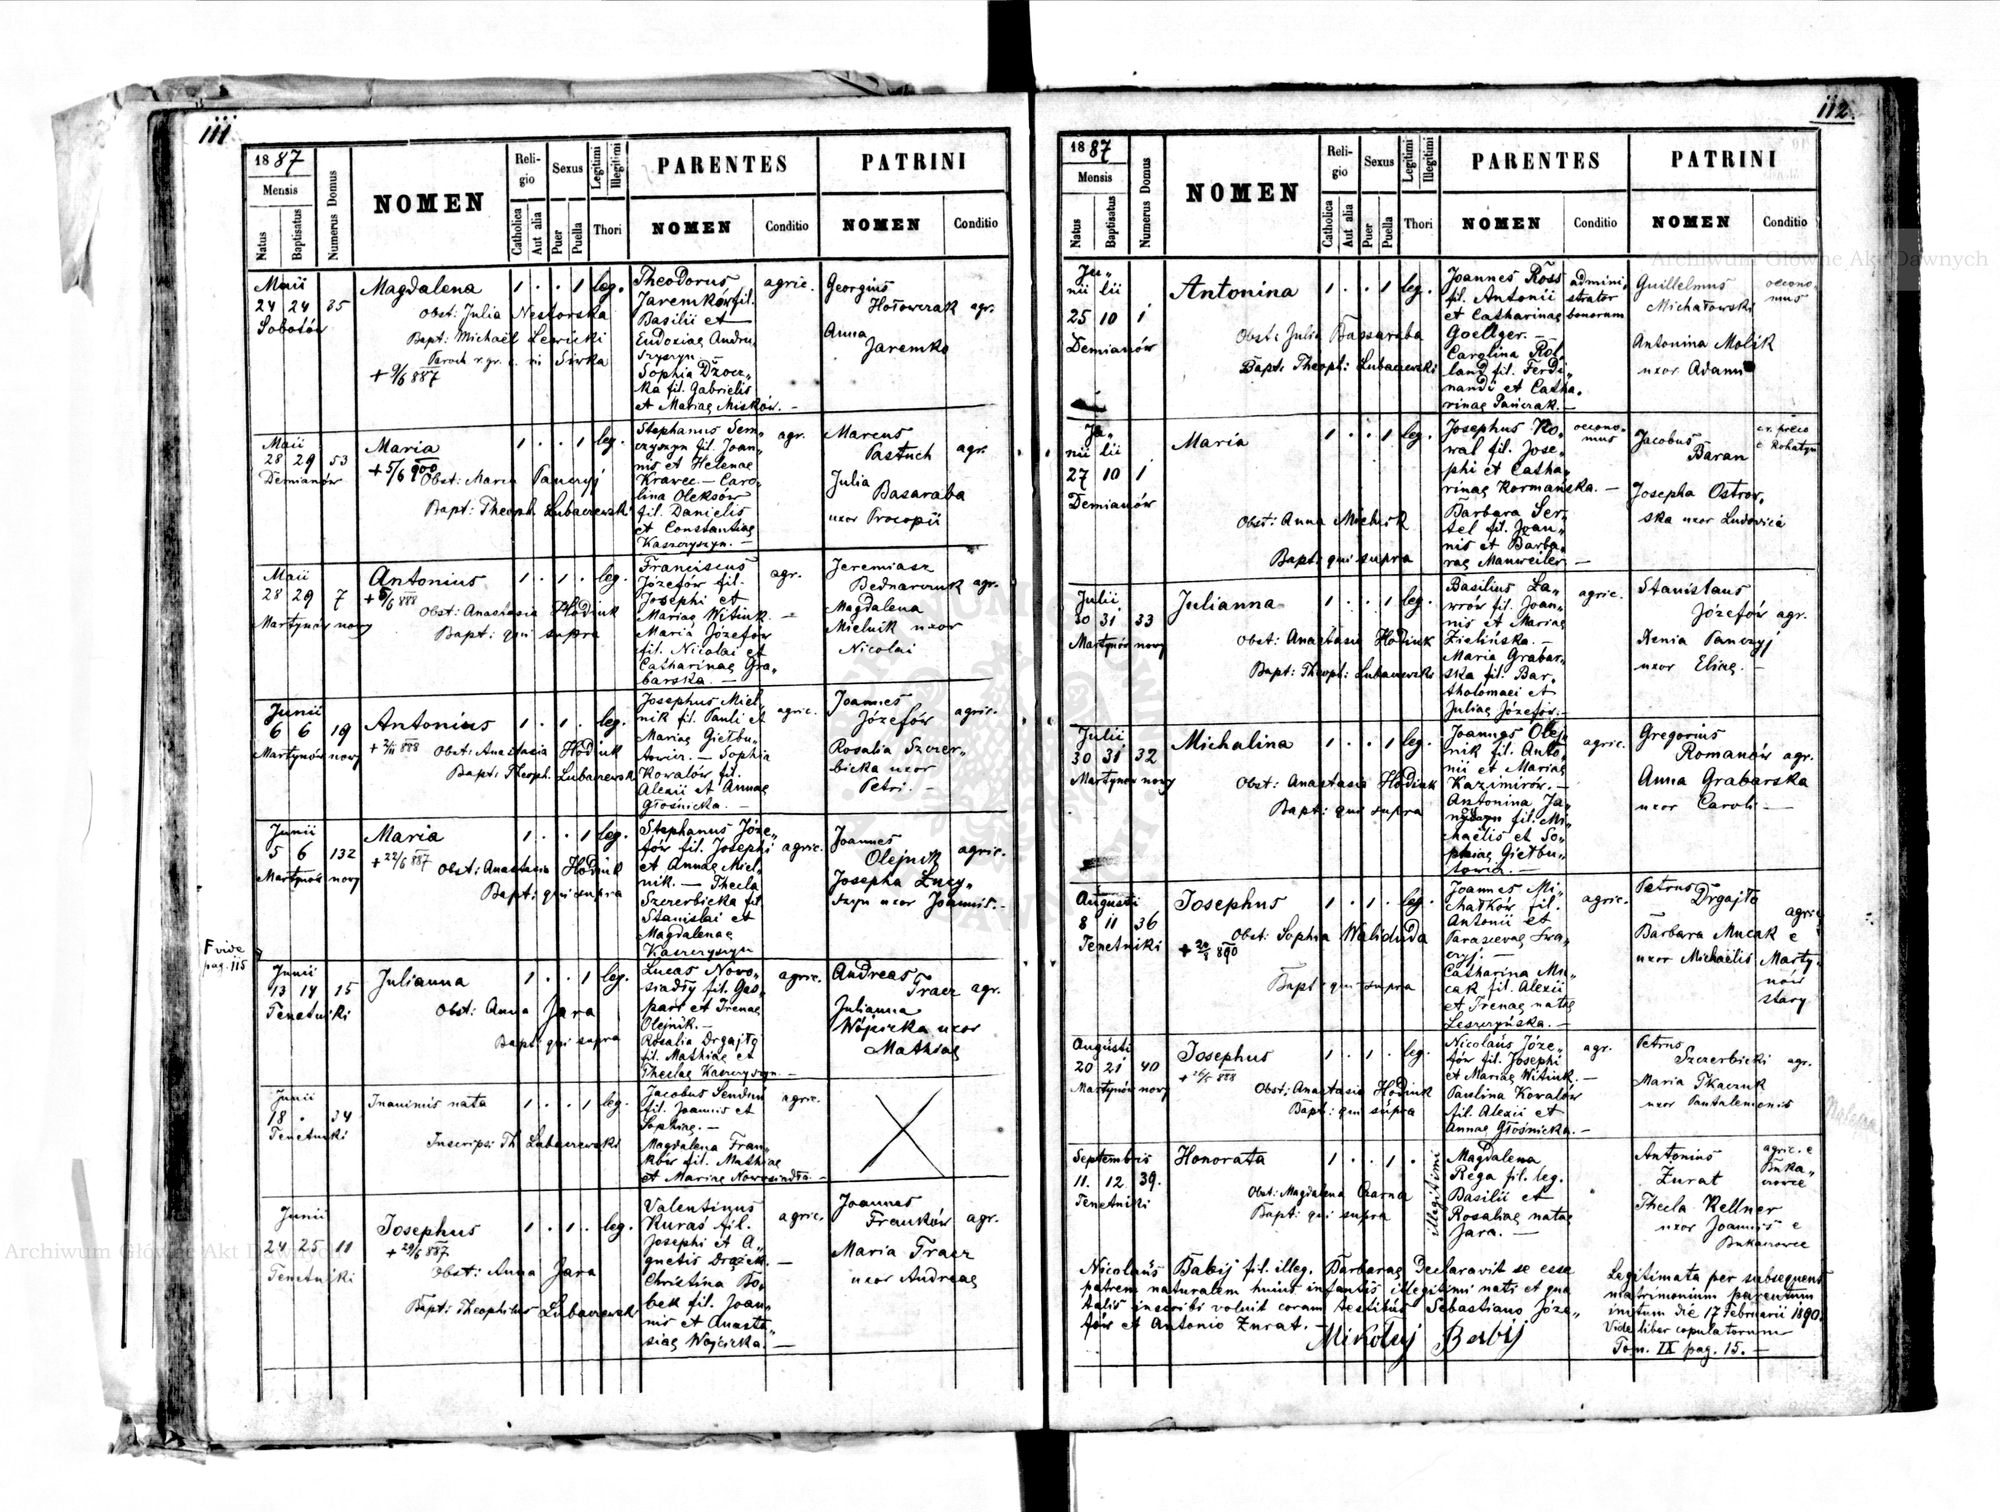 111
1887
Mensis
Natus
Baptisatus
Numerus Domus
NOMEN
Religio
Catholica
Aut alia
Sexus
Puer
Puella
Legitimi
Illegitimi
Thori
PARENTES
NOMEN
Conditio
PATRINI
NOMEN
Conditio
Maii
24 24 35
Sobotów
Magdalena
Obst: Julia Nestorska
Bapt: Michaël Lewicki
Paroch r. gr. c. in Siwka
+ 9/6 887
1 . . 1 leg.
Theodorus
Jaremków fil.
Basilii et
Eudoxiae Andru
szyszyn
Sophia Dżocz„
ka fil. Gabrielis
et Mariae Misków. —
agric.
Georgius
Hołowczak agr.
Anna
Jaremko
Maii
28 29 53
Demianów
Maria
+ 5/6 900
Obst: Maria Panczyj
Bapt: Theoph Lubaczewski
1 . . 1 leg.
Stephanus Sem„
czyszyn fil. Joan„
nis et Helenae
Kravec — Caro„
lina Oleksów
fil. Danielis
et Constantiae
Kaszczyszyn. —
agr.
Marcus
Pastuch agr.
Julia
Basaraba
uxor Procopii
Maii
28 29 7
Martynów nowy
Antonius
+ 5/6 888
Obst: Anastasia Hodiuk
Bapt: qui supra
1 . 1 . leg.
Franciscus
Józefów fil.
Josephi et
Mariae Witiuk. —
Maria Józefów
fil. Nicolai et
Catharinae Gra„
barska. —
agr.
Jeremiasz
Bednarczuk agr.
Magdalena
Mielnik uxor
Nicolai
Junii
6 6 19
Martynów nowy
Antonius
+ 2/11 888
Obst: Anastasia Hodiuk
Bapt: Theoph. Lubaczewski
1 . 1 . leg.
Josephus Miel„
nik fil. Pauli et
Mariae Giełbu„
towicz. — Sophia
Kowalów fil.
Alexii et Annae
Głośnicka. —
agric.
Joannes
Józefów agric.
Rosalia Szczer„
bicka uxor
Petri. —
Junii
5 6 132
Martynów nowy
Maria
+ 22/6 887
Obst: Anastasia Hodiuk
Bapt: qui supra
1 . . 1 leg.
Stephanus Józe„
fów fil. Josephi
et Annae Miel„
nik. — Thecla
Szczerbicka fil.
Stanislai et
Magdalenae
Kaszczyszyn
agric.
Joannes
Olejnik agric.
Josepha Łucy„
szyn uxor Joannis. —
F vide
pag. 115
Junii
13 14 15
Tenetniki
Julianna
Obst: Anna Jara
Bapt: qui supra
1 . . 1 leg.
Lucas Nowo„
siadły fil. Gas„
pari et Irenae
Olejnik. —
Rosalia Drgajło
fil. Mathiae et
Theclae Kaszczyszyn. —
agric.
Andreas
Tracz agr.
Julianna
Wójcicka uxor
Mathiae
Junii
18 . 34
Tenetniki
Inanimis nata
Inscripsi Th Lubaczewski
1 . . 1 leg.
Jacobus Senków
fil. Joannis et
Sophiae. —
Magdalena Fran„
ków fil. Mathiae
et Mariae Nowosiadła —
agric.
Junii
24 25 11
Tenetniki
Josephus
+ 29/6 887
Obst: Anna Jara
Bapt: Theophilus Lubaczewski
1 . 1 . leg.
Valentinus
Kuraś fil.
Josephi et A„
gnetis Drążek. —
Christina Bo„
bek fil. Joan„
nis et Anasta„
siae Wojcicka. —
agric.
Joannes
Franków agr.
Maria Tracz
uxor Andreae
112.
1887
Mensis
Natus
Baptisatus
Numerus Domus
NOMEN
Religio
Catholica
Aut alia
Sexus
Puer
Puella
Legitimi
Illegitimi
Thori
PARENTES
NOMEN
Conditio
PATRINI
NOMEN
Conditio
Ju„
nii lii
25 10 1
Demianów
Antonina
Obst: Julia Bassaraba
Bapt: Theoph: Lubaczewski
1 . . 1 leg.
Joannes Ross
fil. Antonii
et Catharinae
Goellger. —
Carolina Rol„
land fil. Ferdi„
nandi et Catha„
rinae Pańczak. —
admini„
strator
bonorum
Guillelmus
Michałowski
oecono„
mus
Antonina Molik
uxor Adami
Ju„
nii lii
27 10 1
Demianów
Maria
Obst: Anna Mielnik
Bapt: qui supra
1 . . 1 leg.
Josephus Ko„
wal fil. Jose„
phi et Catha„
rinae Kormańska. —
Barbara Ser„
tel fil. Joan„
nis et Barba„
rae Manweiler. —
oecono„
mus
Jacobus
Baran
e Rohatyn
Josepha Ostrow„
ska uxor Ludovici
Julii
30 31 33
Martynów nowy
Julianna
Obst: Anastasia Hodiuk
Bapt: Theoph: Lubaczewski
1 . . 1 leg.
Basilius Ła„
wrów fil. Joan„
nis et Mariae
Zielińska. —
Maria Grabar„
ska fil. Bar„
tholomaei et
Juliae Józefów. —
agric.
Stanislaus
Józefów agr.
Xenia Panczyj
uxor Eliae. —
Julii
30 31 32
Martynów nowy
Michalina
Obst: Anastasia Hodiuk
Bapt: qui supra
1 . . 1 leg.
Joannes Olej„
nik fil. Anto„
nii et Mariae
Kazimirów. —
Antonina Ja„
fil. Mi„
chaëlis et So„
phiae Giełbu„
towicz. —
agric.
Gregorius
Romanów agr.
Anna Grabarska
uxor Caroli —
Augusti
8 11 36
Tenetniki
Josephus
+ 20/8 890
Obst: Sophia Waliduda
Bapt: qui supra
1 . 1 . leg.
Joannes Mi„
chałków fil.
Antonii et
Parascevae Swa„
czyj. —
Catharina Mu„
cak fil. Alexii
et Irenae natae
Leszczyńska. —
agric.
Petrus
Drgajło
agric
Barbara Mucak e
uxor Michaëlis Marty„
nów
stary
Augusti
20 21 40
Martynów nowy
Josephus
+ 26/5 888
Obst: Anastasia Hodiuk
Bapt: qui supra
1 . 1 . leg.
Nicolaus Józe„
fów fil. Josephi
et Mariae Witiuk. —
Paulina Kowalów
fil. Alexii et
Annae Głośnicka. —
agr.
Petrus
Szczerbicki agr.
Maria Tkaczuk
uxor Pantalemonis
Septembris
11. 12 39.
Tenetniki
Honorata
Obst: Magdalena Czarna
Bapt: qui supra
1 . . 1 .
illegitimi
Magdalena
Rega fil. leg.
Basilii et
Rosaliae natae
Jara. —
Antonius
Żurat
agric. e
Buka„
czowce
Thecla Kellner
uxor Joannis e
Bukaczowce
Nicolaus Babij fil. illeg. Barbarae Declaravit se esse
patrem naturalem huius infantis illegitimi nati et qua
talis inscribi voluit coram testibus Sebastiano Józe„
fów et Antonio Żurat. —
Mikołaj Babij
Legitimata per subsequens
matrimonium parentum
initum die 17 Februarii 1890.
Vide liber copulatorum
Tom. IX pag. 15. —
Archiwum Główne Akt Dawnych
Archiwum Główne Akt Dawnych